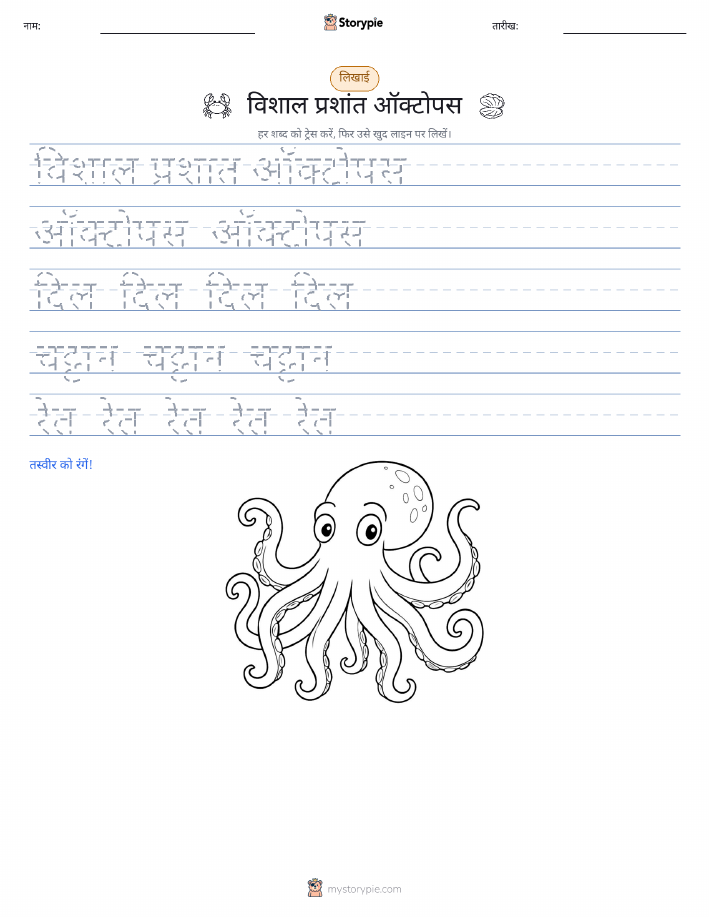 नाम:
Storypie
तारीख:
लिखाई
विशाल प्रशांत ऑक्टोपस
हर शब्द को ट्रेस करें, फिर उसे खुद लाइन पर लिखें।
विशाल प्रशांत ऑक्टोपस
ऑक्टोपस ऑक्टोपस
दिल दिल दिल दिल
चट्टान चट्टान चट्टान
रेत रेत रेत रेत रेत
तस्वीर को रंगें!
mystorypie.com